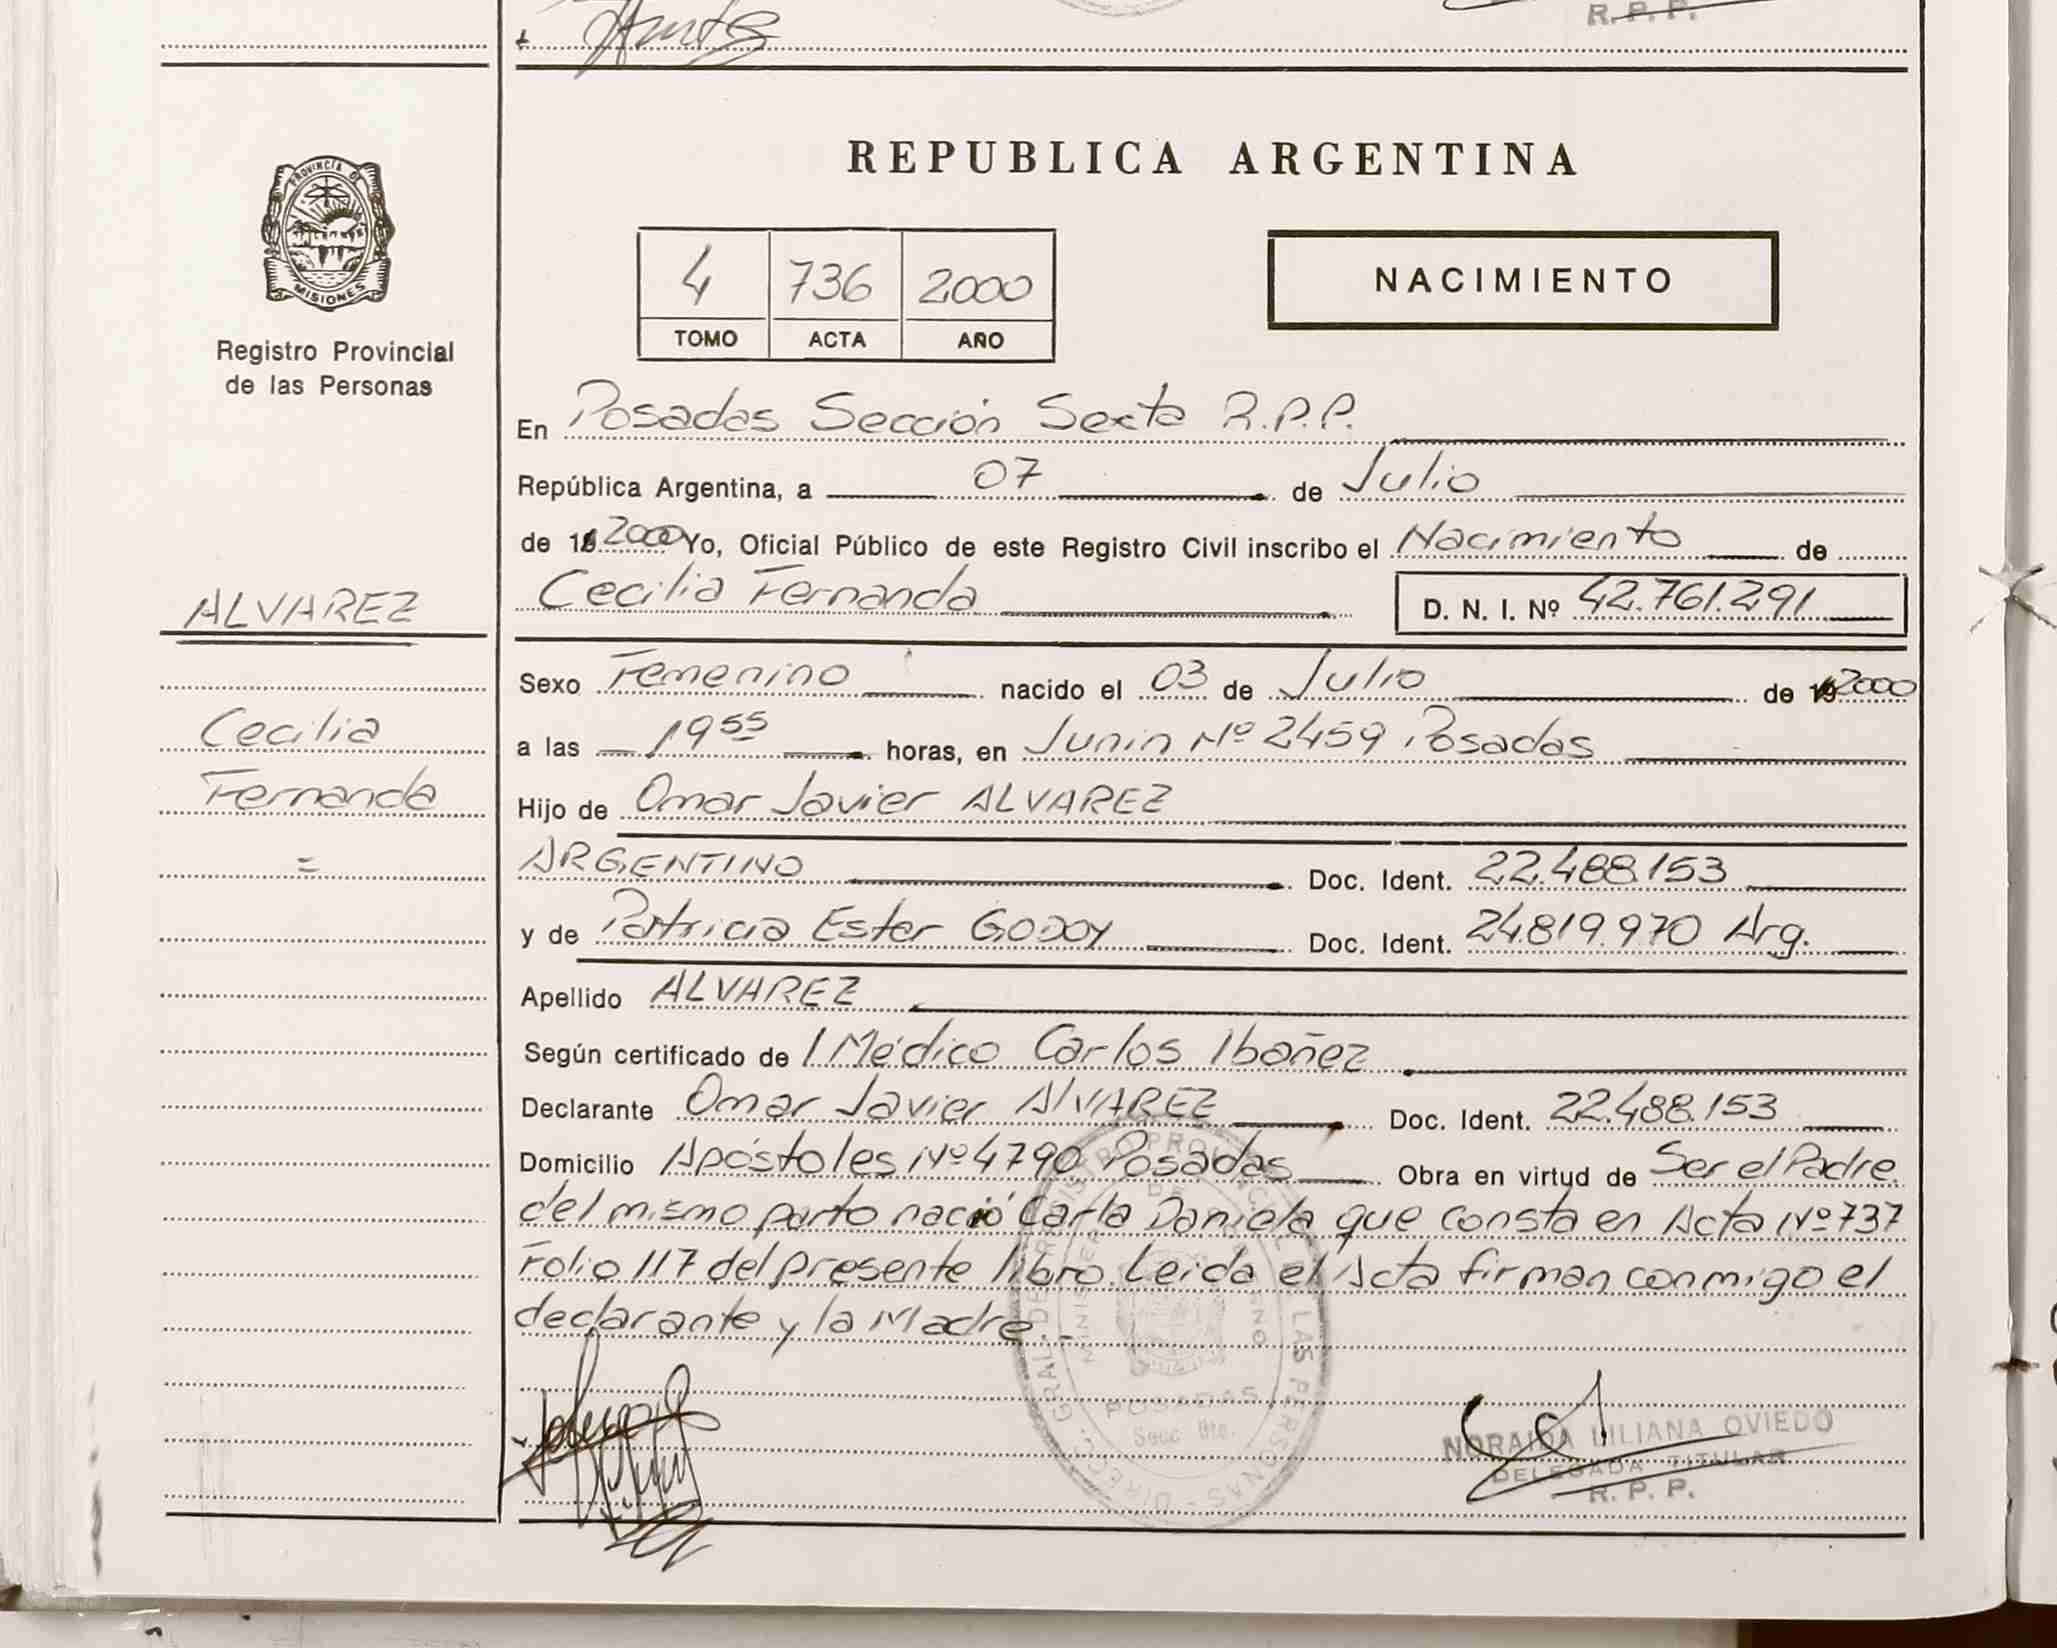 R. P. P.
PROVINCIA DE
MISIONES
Registro Provincial
de las Personas
REPUBLICA ARGENTINA
4 736 2000
TOMO ACTA AÑO
NACIMIENTO
En Posadas Sección Sexta R.P.P.
República Argentina, a 07 de Julio
de 2000 Yo, Oficial Público de este Registro Civil inscribo el Nacimiento de
ALVAREZ
Cecilia Fernanda D. N. I. Nº 42.761.291
Sexo Femenino nacido el 03 de Julio de 2000
Cecilia
a las 19 55 horas, en Junin Nº 2459 Posadas
Fernanda
Hijo de Omar Javier ALVAREZ
=
ARGENTINO Doc. Ident. 22.488.153
y de Patricia Ester GODOY Doc. Ident. 24.819.970 Arg.
Apellido ALVAREZ
Según certificado de l Médico Carlos Ibañez
Declarante Omar Javier ALVAREZ Doc. Ident. 22.488.153
Domicilio Apóstoles Nº 4790 Posadas Obra en virtud de Ser el Padre.
del mismo parto nació Carla Daniela que consta en Acta Nº 737
Folio 117 del presente libro. Leida el Acta firman conmigo el
declarante y la Madre.
DIRECC. GRAL. DE REGISTRO PROVINCIAL DE LAS PERSONAS
POSADAS
Secc. 6ta.
NORAIDA LILIANA OVIEDO
DELEGADA TITULAR
R. P. P.